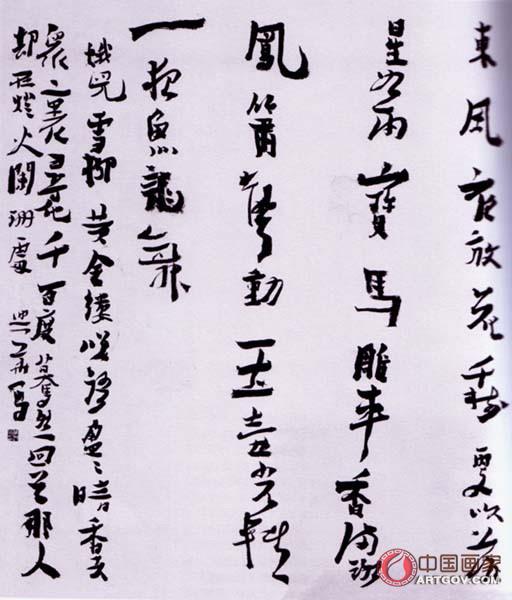 東風夜放花千樹更吹落
星如雨寶馬雕車香滿路
鳳簫聲動玉壺光轉
一夜魚龍舞
蛾兒雪柳黃金縷笑語盈〻暗香去
衆裏尋千百度驀然回首那人
却在燈火闌珊處
中国画家
ARTGOV.COM